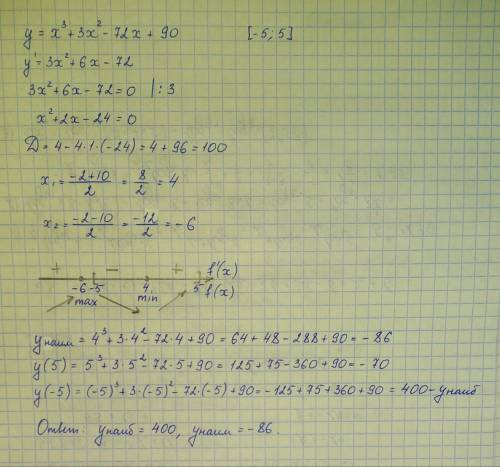 y = x³+3x²-72x+90 [-5; 5]
y' = 3x²+6x-72
3x²+6x-72=0 |:3
x²+2x-24=0
D=4-4·1·(-24)=4+96=100
x₁=(-2+10)/2=8/2=4
x₂=(-2-10)/2=-12/2=-6
+ - + f'(x)
-6 -5 4 5 f(x)
max min
yнаим=4³+3·4²-72·4+90=64+48-288+90=-86
y(5)=5³+3·5²-72·5+90=125+75-360+90=-70
y(-5)=(-5)³+3·(-5)²-72·(-5)+90=-125+75+360+90=400-yнаиб
Ответ: yнаиб=400, yнаим=-86.